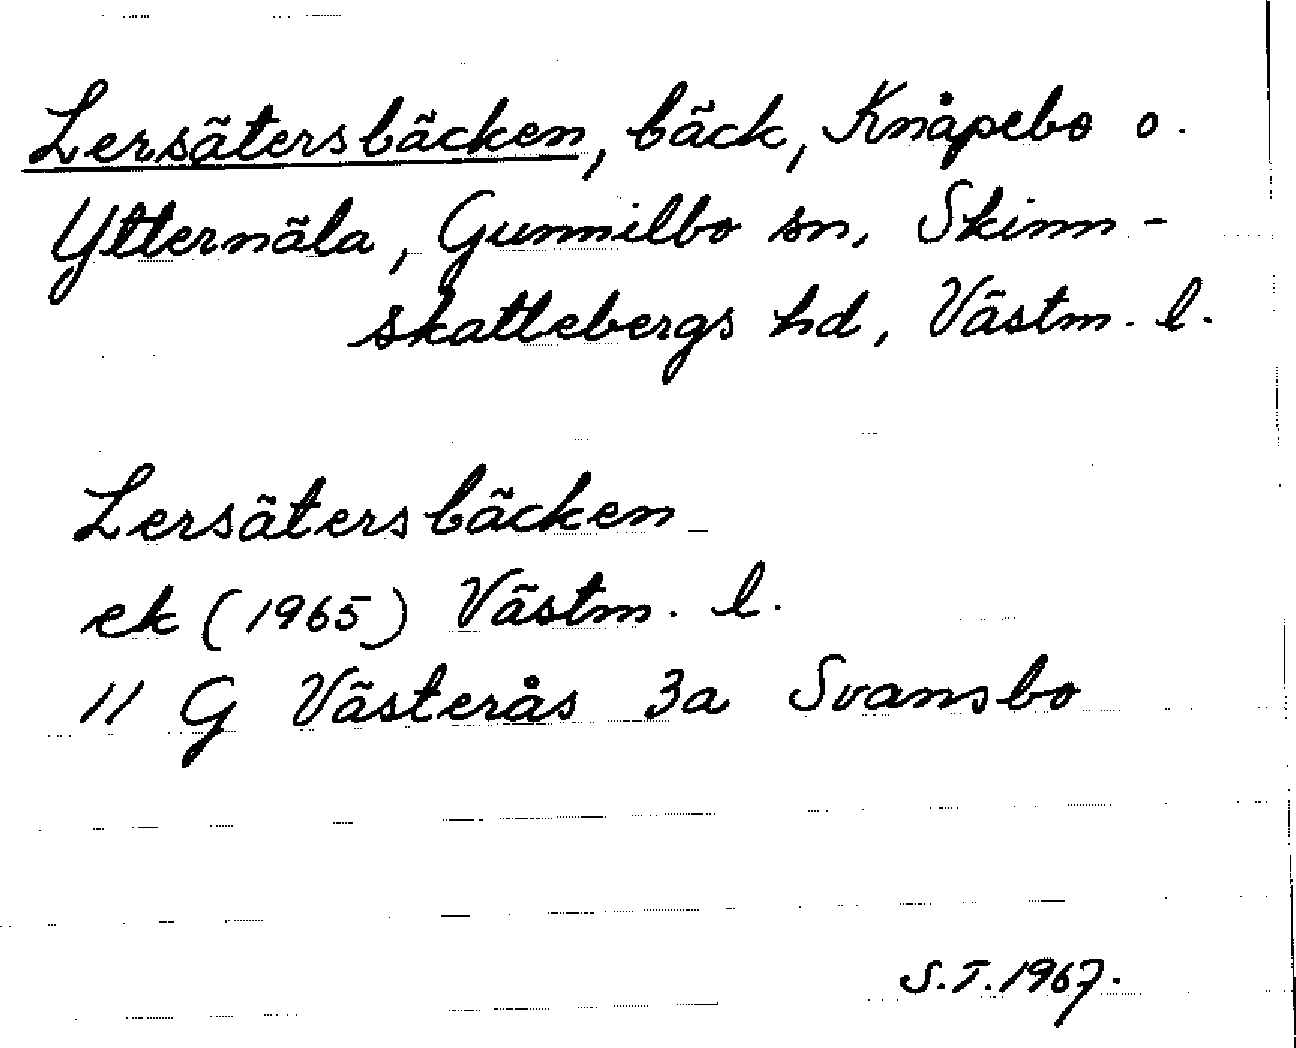 Lersätersbäcken, bäck, Knåpebo o.
Ytternäla, Gunnilbo sn, Skinn-
skattebergs hd, Västm. l.
Lersätersbäcken
ek (1965) Västm. l.
11 G Västerås 3a Svansbo
S.T. 1967.